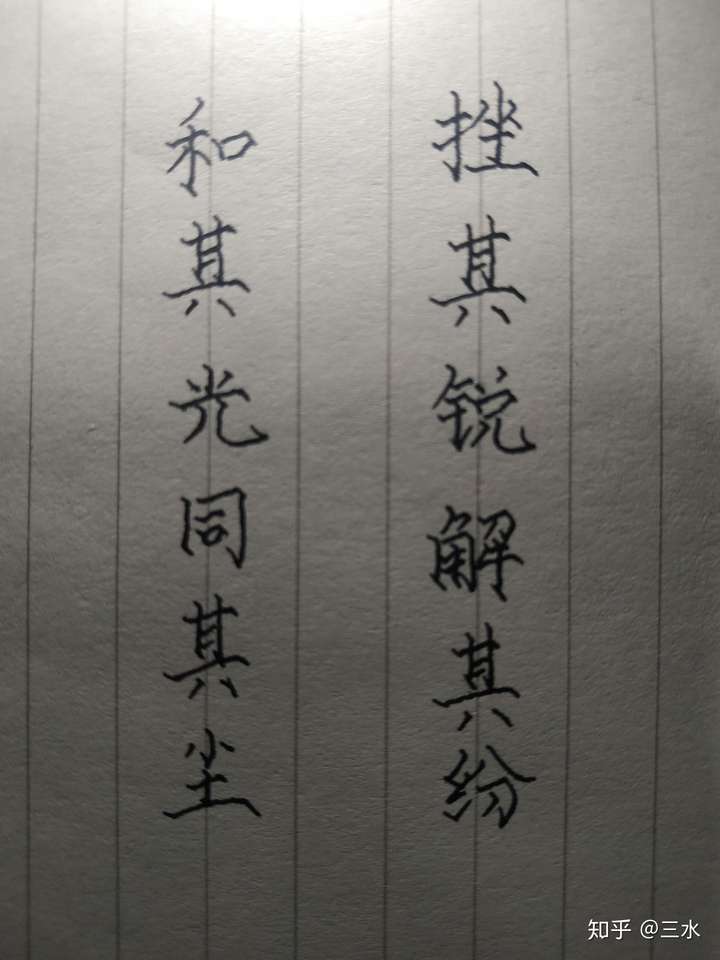 挫其锐解其纷
和其光同其尘
知乎 @三水